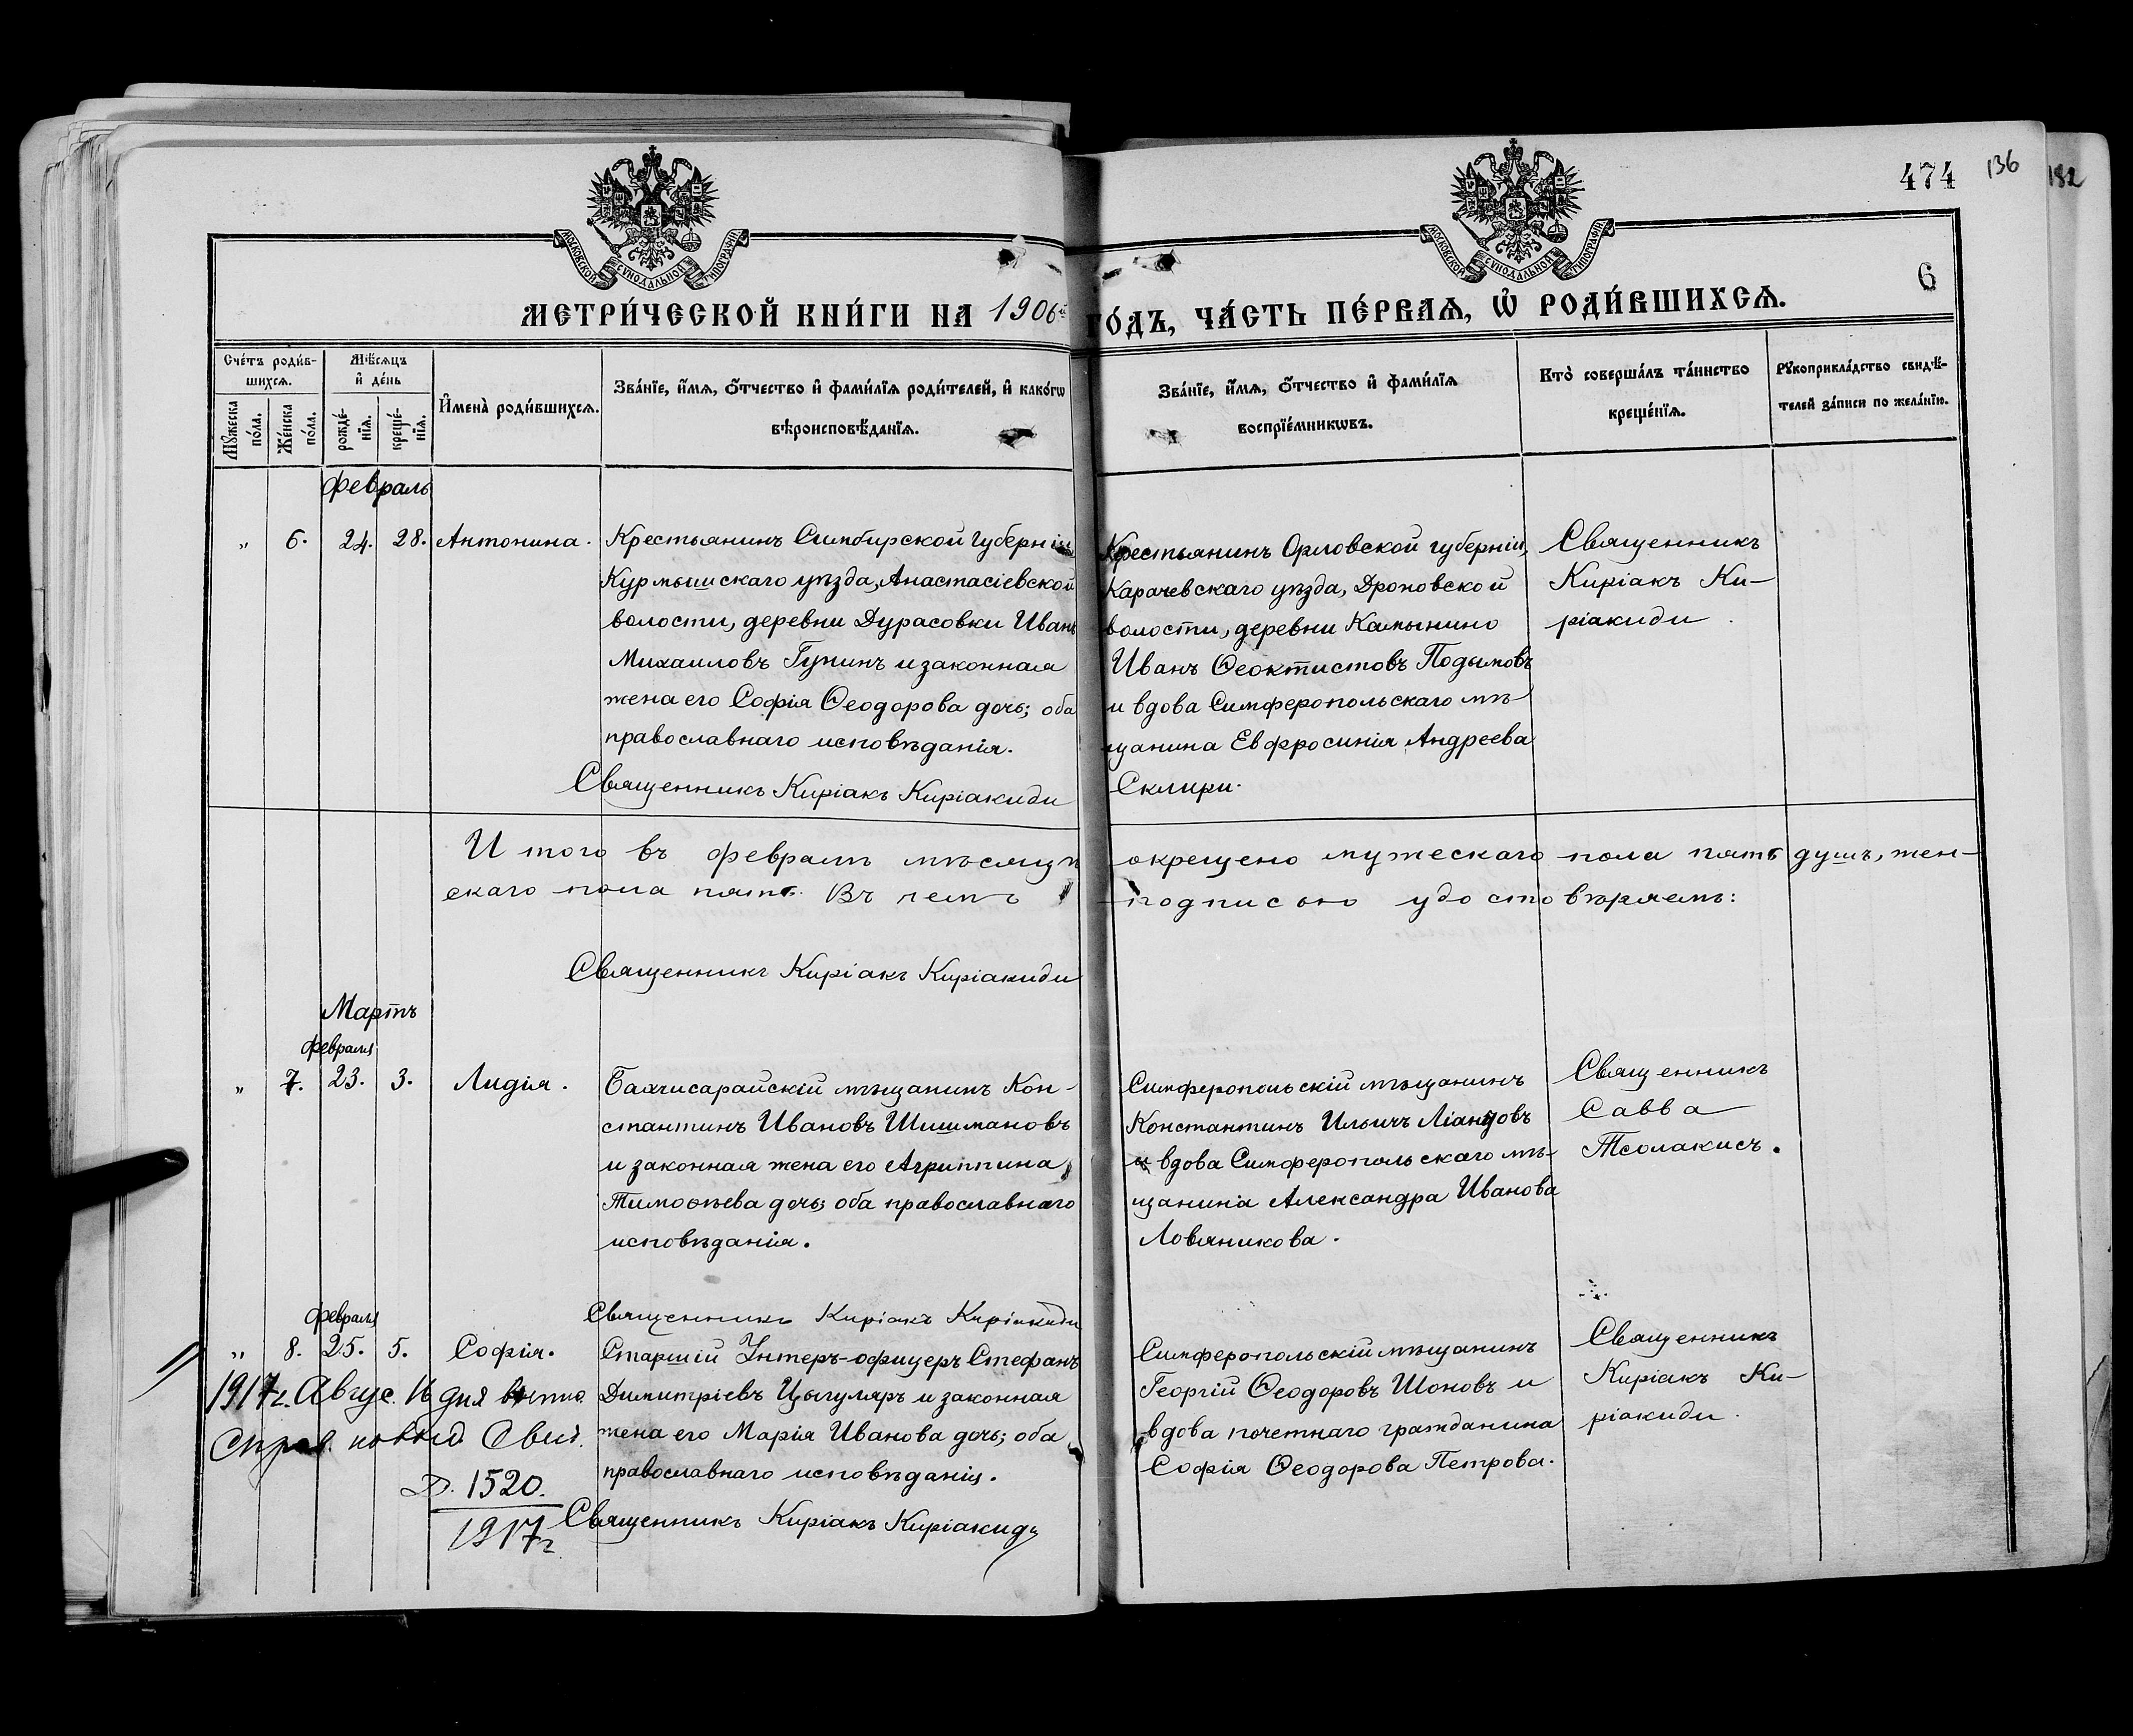 474 136 182
МОСКОВСКОЙ СѴНОДАЛЬНОЙ ТИПОГРАФІИ
МОСКОВСКОЙ СѴНОДАЛЬНОЙ ТИПОГРАФІИ
6
МЕТРИ́ЧЕСКОЙ КНИ́ГИ НА 1906й
ГО́ДЪ, ЧА́СТЬ ПЕ́РВАѦ, Ѡ҆ РОДИ́ВШИХСѦ.
Сче́тъ роди́в-
шихсѧ.
Мꙋ́жеска по́ла.
Же́нска по́ла.
Мѣ́сѧцъ
и҆ де́нь
рожде́-
нїѧ.
креще́-
нїѧ.
И҆мена̀ роди́вшихсѧ.
Зва́нїе, и҆́мѧ, ѻ҆́тчество и҆ фами́лїѧ роди́телей, и҆ како́гѡ
вѣроисповѣ́данїѧ.
Зва́нїе, и҆́мѧ, ѻ҆́тчество и҆ фами́лїѧ
воспрїе́мникѡвъ.
Кто̀ соверша́лъ та́инство
креще́нїѧ.
Рꙋкоприкла́дство свидѣ́-
телей за́писи по жела́нїю.
Февраль
„ 6. 24. 28. Антонина.
Крестьянинъ Симбирской губерніи
Курмышскаго уѣзда, Анастасіевской
волости, деревни Дурасовки Иванъ
Михаиловъ Гунинъ и законная
жена его Софія Ѳеодорова дочь; оба
православнаго исповѣданія.
Священникъ Киріакъ Киріакиди
Крестьянинъ Орловской губерніи,
Карачевскаго уѣзда, Дроновской
волости, деревни Калынино
Иванъ Ѳеоктистовъ Подымовъ
и вдова Симферопольскаго мѣ-
щанина Евфросинія Андреева
Склири.
Священникъ
Киріакъ Ки-
ріакиди.
Итого въ февралѣ мѣсяцѣ окрещено мужескаго пола пять душъ, жен-
скаго пола пять. Въ чемъ подписью удостовѣряемъ:
Священникъ Киріакъ Киріакиди
Мартъ
Февраля
„ 7. 23. 3. Лидія.
Бахчисарайскій мѣщанинъ Кон-
стантинъ Ивановъ Шишмановъ
и законная жена его Агриппина
Тимоѳѣева дочь; оба православнаго
исповѣданія.
Священникъ Киріакъ Киріакиди
Симферопольскій мѣщанинъ
Константинъ Ильичъ Ліандовъ
и вдова Симферопольскаго мѣ-
щанина Александра Иванова
Ловяникова.
Священникъ
Савва
Тсолакисъ.
Февраля
„ 8. 25. 5. Софія.
Старшій Унтеръ-офицеръ Стефанъ
Димитріевъ Цыгуляръ и законная
жена его Марія Иванова дочь; оба
православнаго исповѣданія.
Священникъ Киріакъ Киріакиди
Симферопольскій мѣщанинъ
Георгій Ѳеодоровъ Шоновъ и
вдова почетнаго гражданина
Софія Ѳеодорова Петрова.
Священникъ
Киріакъ Ки-
ріакиди.
1917г. Авгус. 16 дня
Свид.
1520.
1917г.